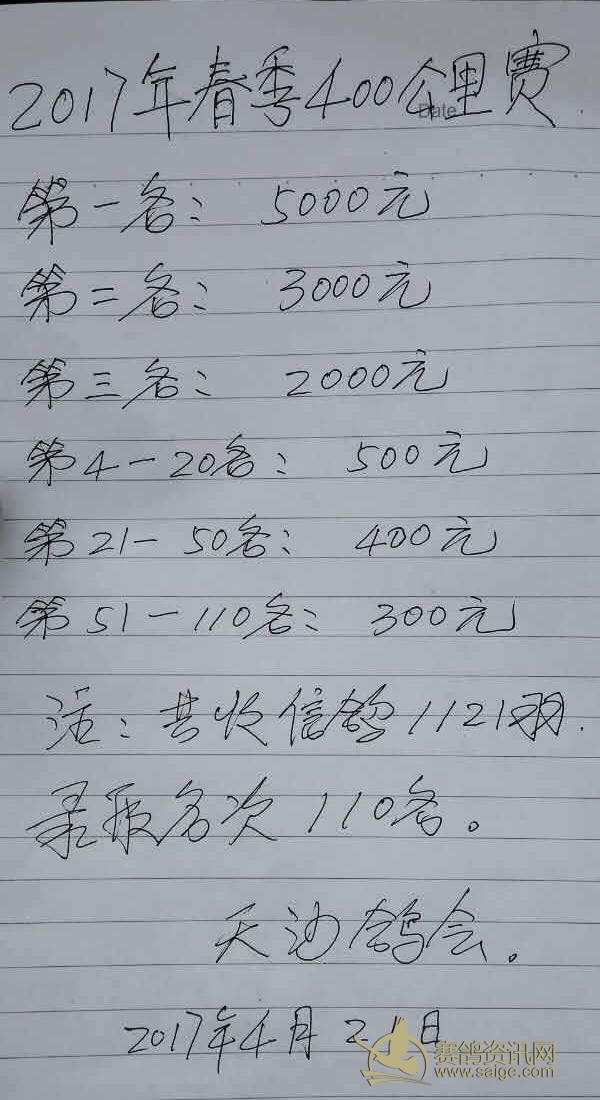 2017年春季400公里赛.
Date
第一名: 5000元
第二名: 3000元
第三名: 2000元
第4-20名: 500元
第21-50名: 400元
第51-110名: 300元
注: 共收信鸽1121羽.
录取名次110名。
天沙鸽会。
2017年4月21日
赛鸽资讯网
www.saige.com